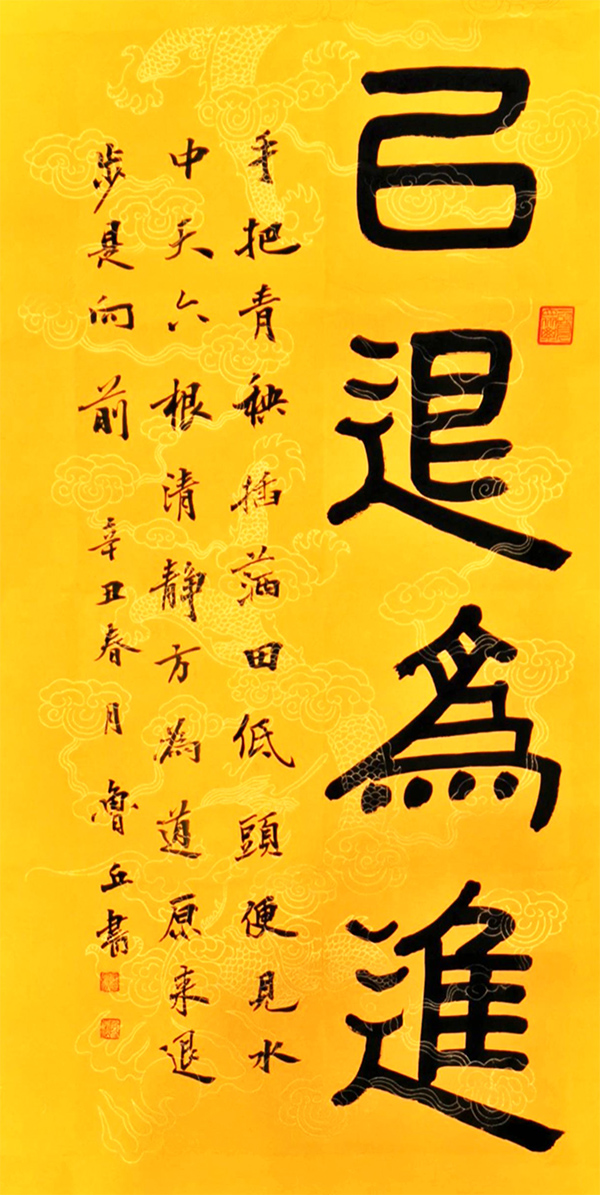 以退為進
手把青秧插滿田低頭便見水
中天六根清靜方為道原来退
步是向前 辛丑春月魯丘書